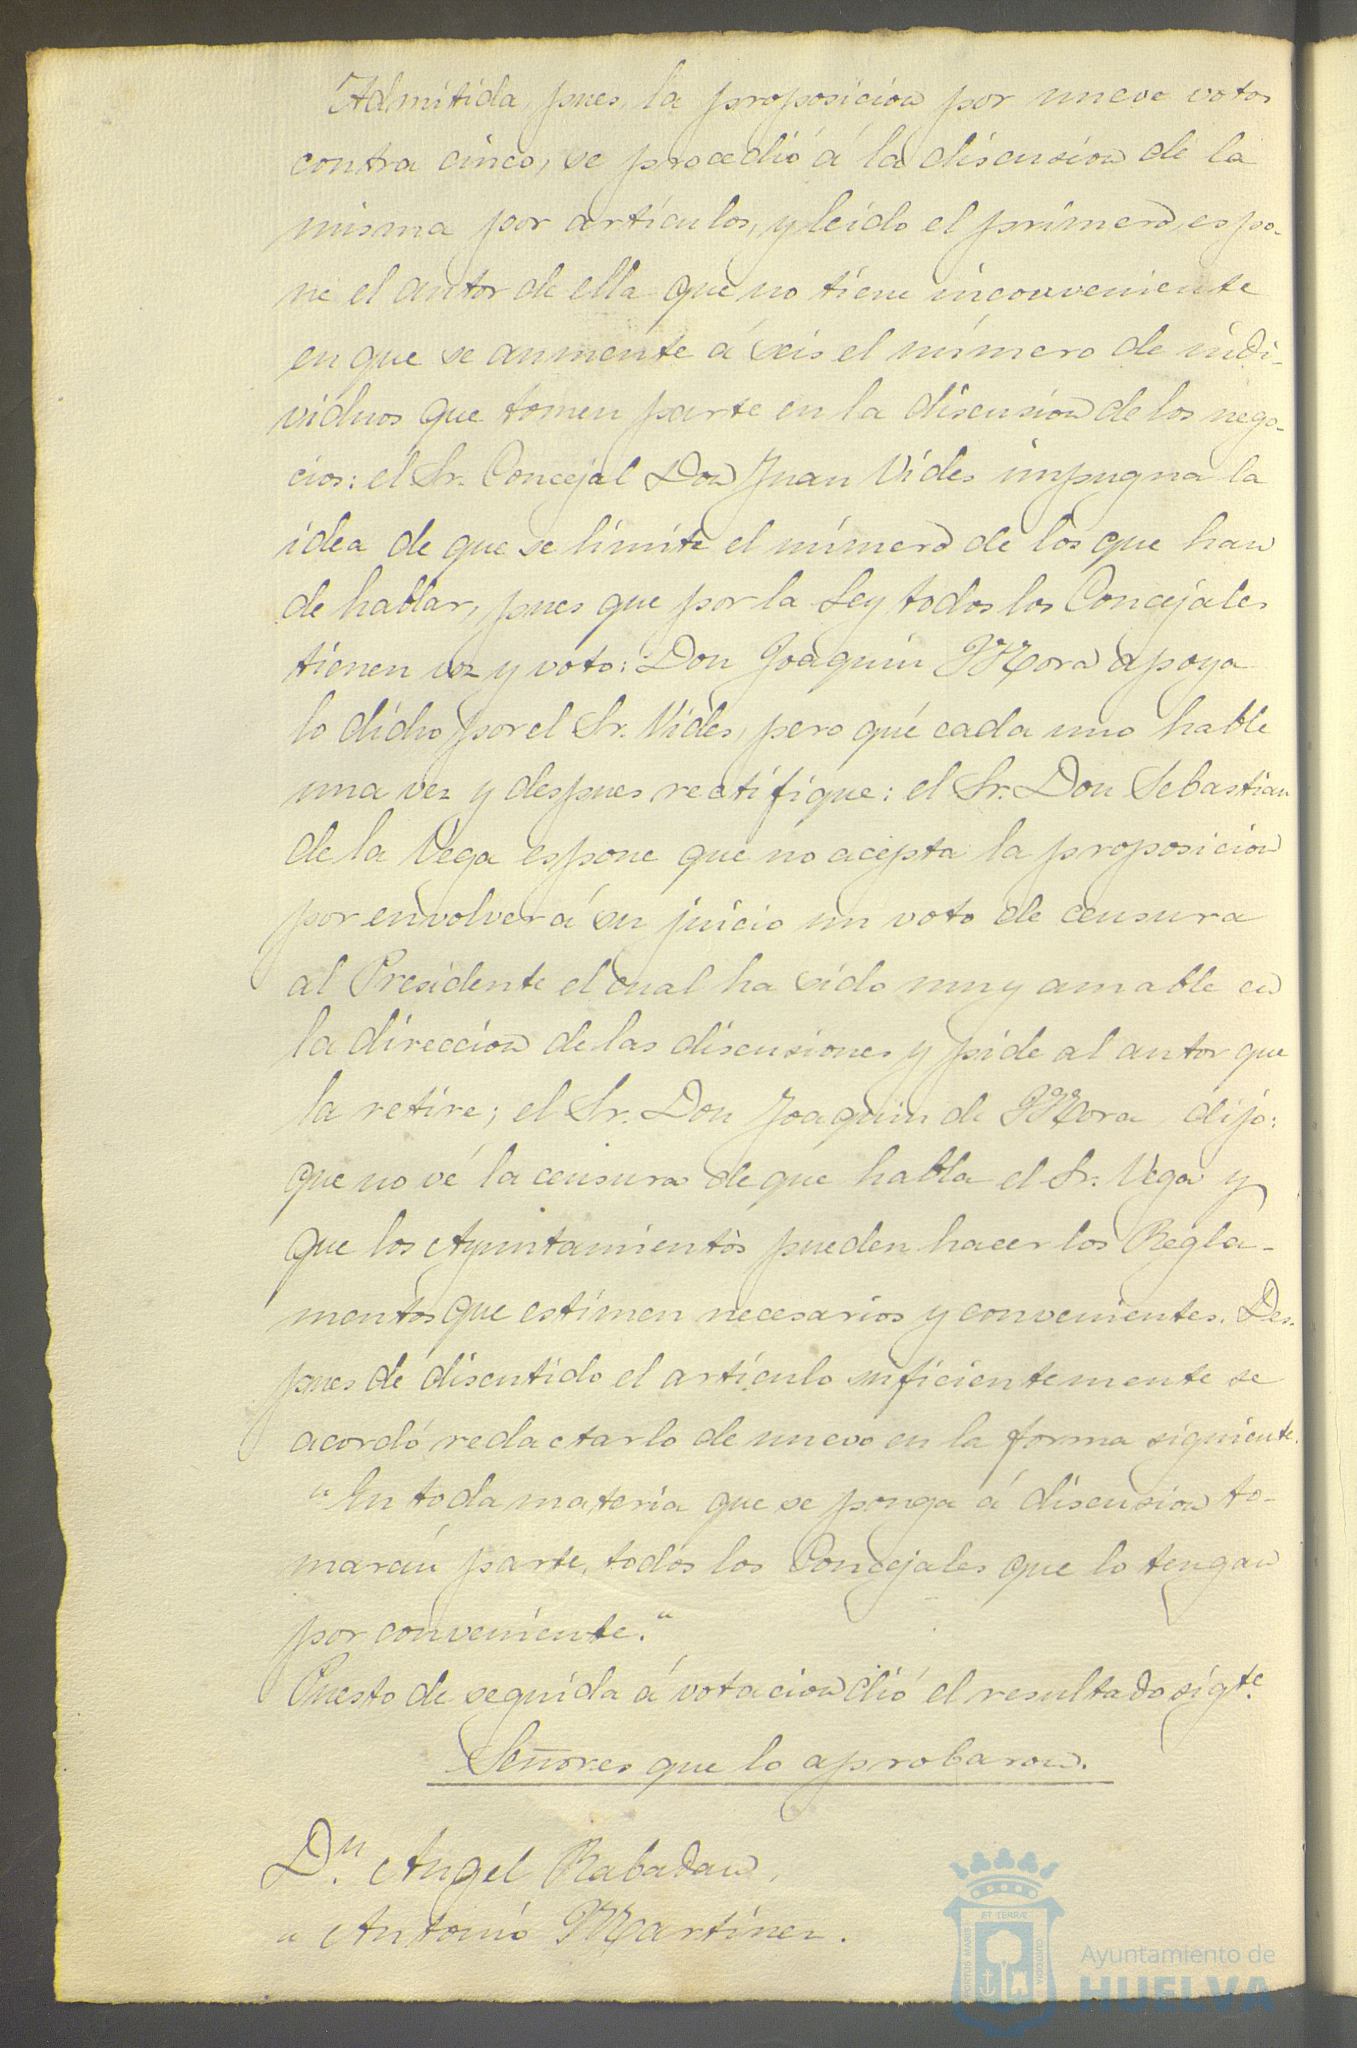 Admitida, pues, la proposicion por nueve votos
contra cinco, se procedió á la discusion de la
misma por artículos, y leido el primero, espo-
ne el autor de ella que no tiene inconveniente
en que se aumente á seis el número de indi-
viduos que tomen parte en la discusion de los nego-
cios: el Sr. Concejal Don Juan Vides impugna la
idea de que se limite el número de los que han
de hablar, pues que por la Ley todos los Concejales
tienen voz y voto: Don Joaquin Mora apoya
lo dicho por el Sr. Vides, pero qué cada uno hable
una vez y despues rectifique: el Sr. Don Sebastian
de la Vega espone que no acepta la proposicion
por envolver á su juicio un voto de censura
al Presidente el cual ha sido muy amable en
la direccion de las discusiones y pide al autor que
la retire; el Sr. Don Joaquin de Mora, dijo:
que no vé la censura de que habla el Sr. Vega y
que los Ayuntamientos pueden hacer los Regla-
mentos que estimen necesarios y convenientes. Des-
pues de discutido el artículo suficientemente se
acordó redactarlo de nuevo en la forma siguiente.
"En toda materia que se ponga á discusion to-
marán parte, todos los Concejales que lo tengan
por conveniente."
Puesto de seguida á votacion dió el resultado sigte.
Señores que lo aprobaron.
Dn. Angel Rabadan,
" Antonio Martinez.
PORTUS MARIS ET TERRÆ CUSTODIA
Ayuntamiento de
HUELVA